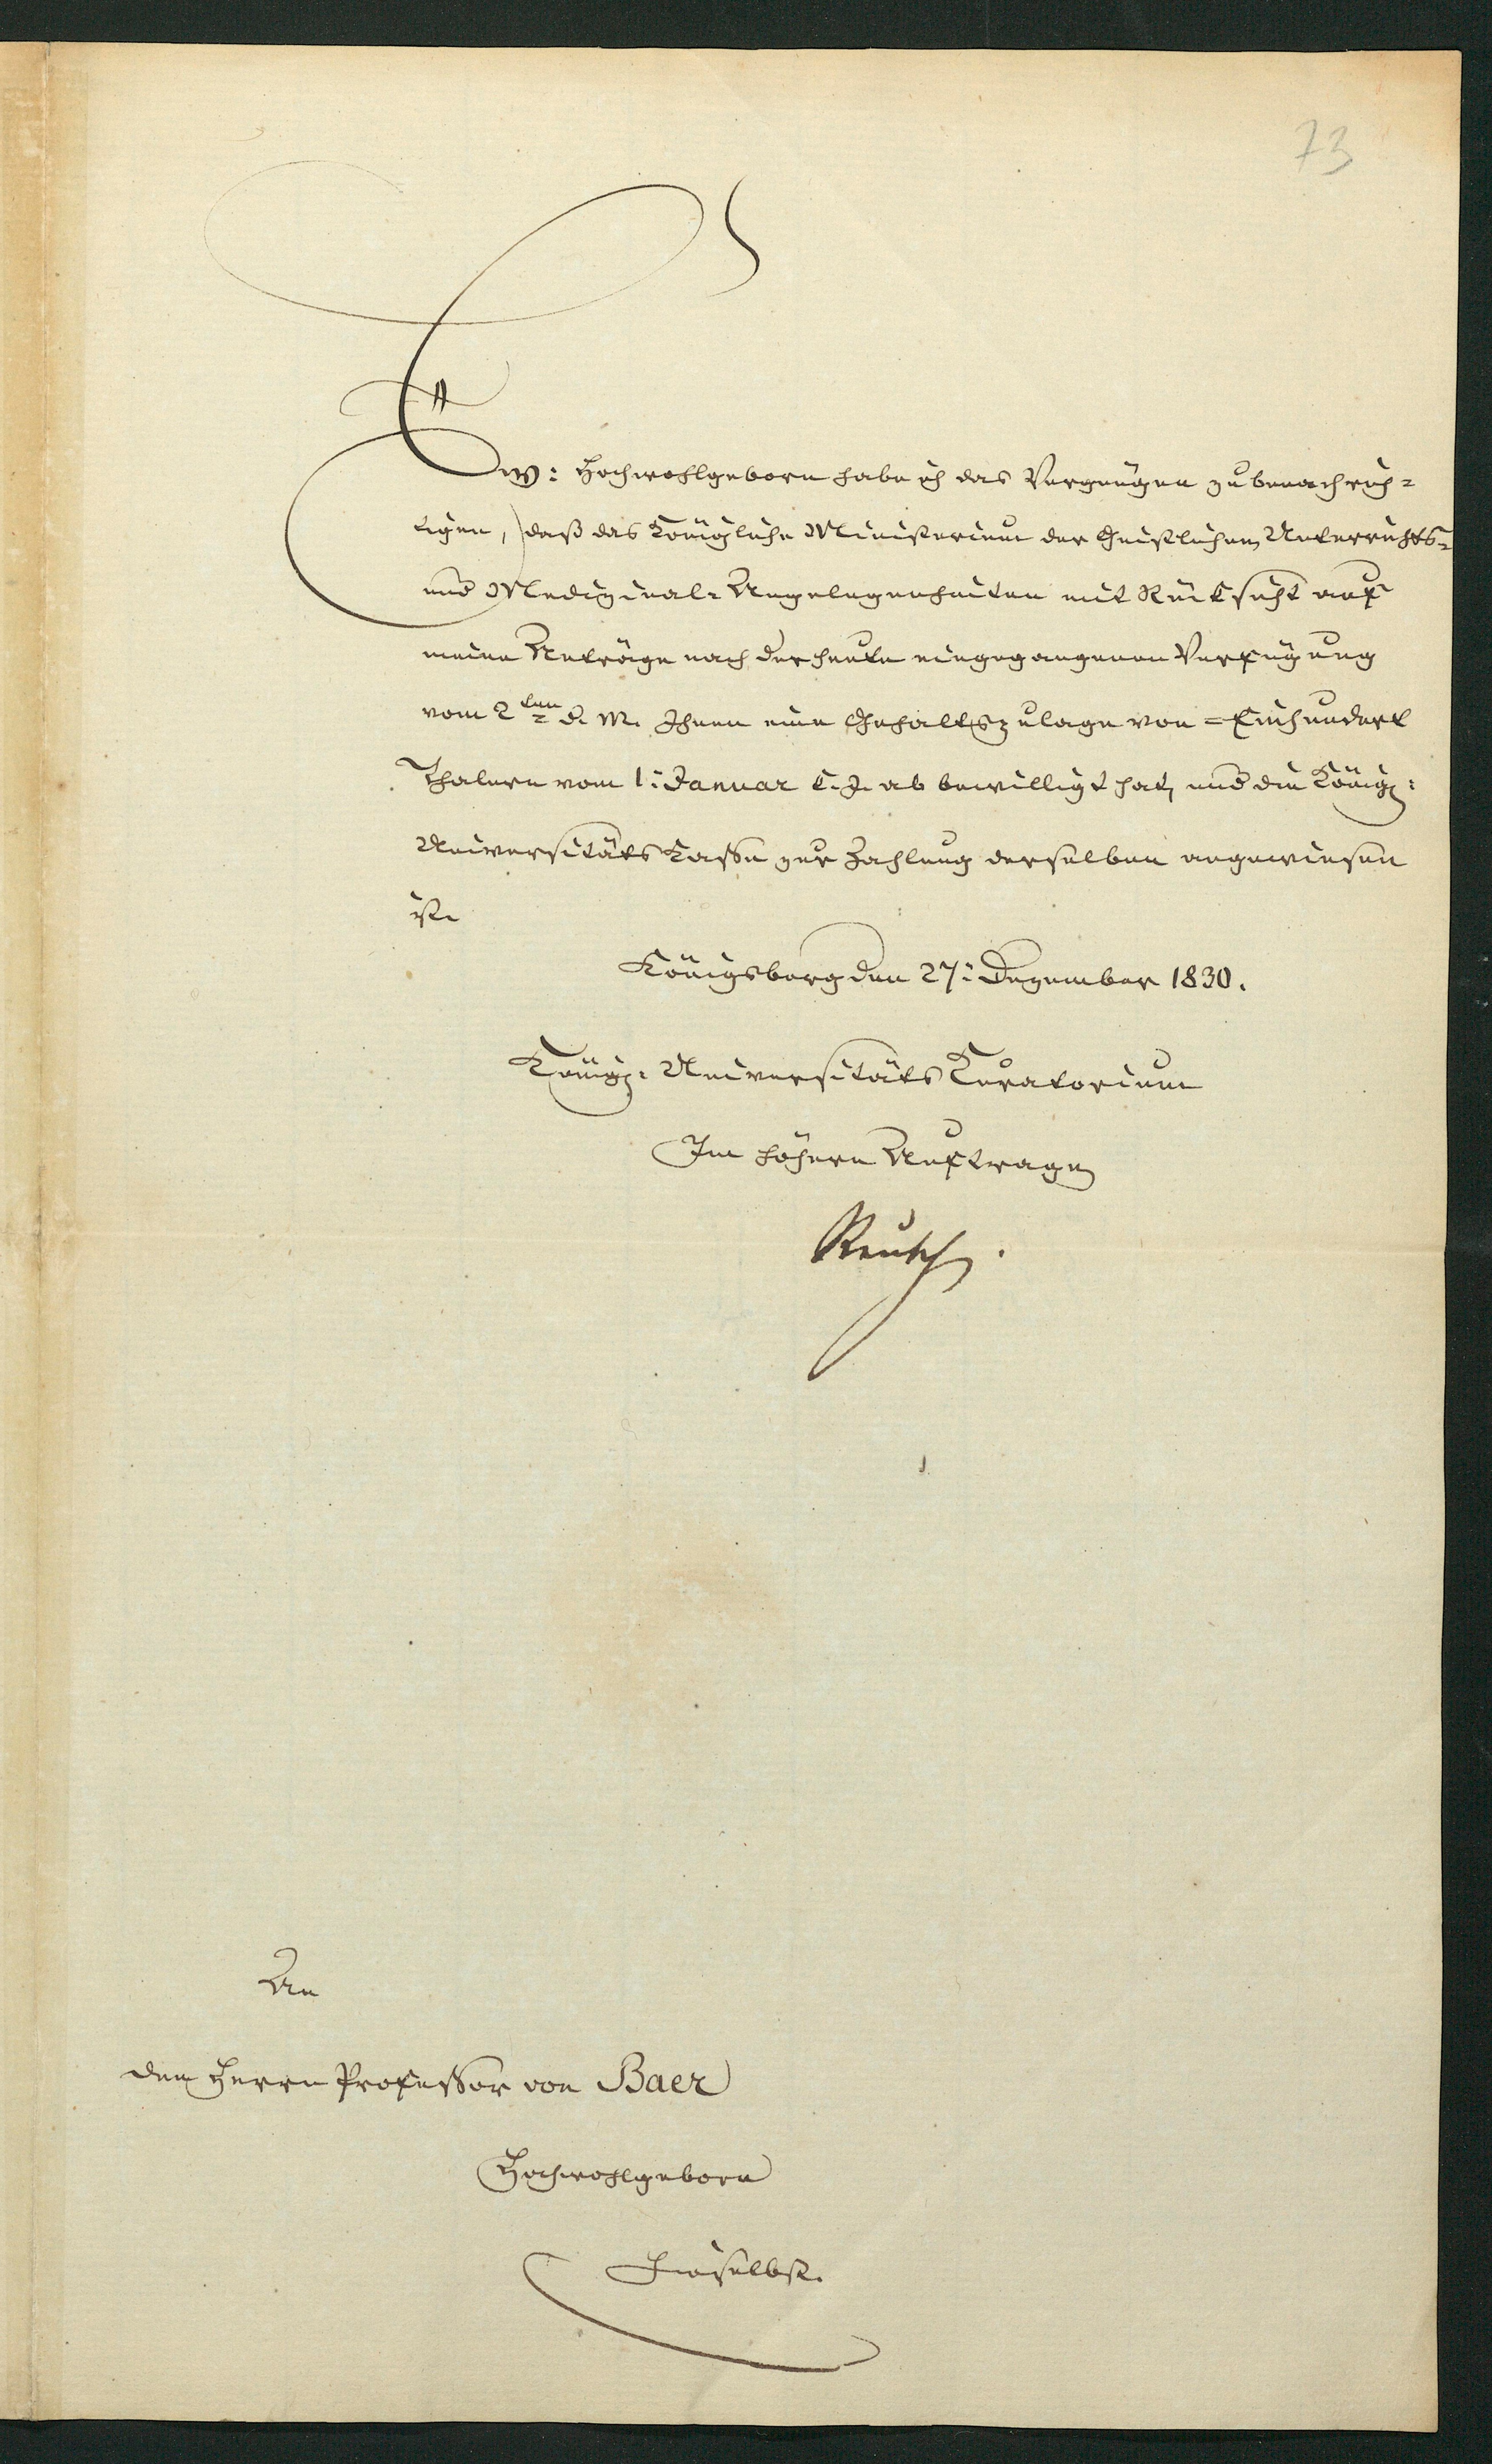 73
Ew: Hochwohlgeborn habe ich das Vergnügen zu benachrich=
tigen, daß das Königliche Ministerium der Geistlichen, Unterrichts=
und Medizinal-Angelegenheiten mit Rücksicht auf
meine Anträge nach der heute eingegangenen Verfügung
vom 2ten d. M. Ihnen eine Gehaltszulage von = Einhundert
Thalern vom 1: Januar k. J. ab bewilligt hat, und die Königl:
Universitäts Kasse zur Zahlung derselben angewiesen
ist.
Königsberg den 27: Dezember 1830.
Königl: Universitäts Kuratorium
Im höhern Auftrage
Reusch.
An
den Herrn Professor von Baer
Hochwohlgeborn
Hieselbst.